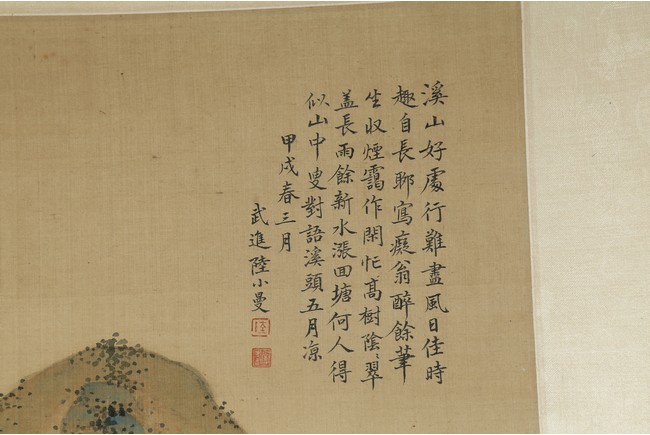 溪山好處行難盡風日佳時
趣自長聊寫癡翁醉餘筆
生收煙靄作閑忙高樹陰〻翠
蓋長雨餘新水漲回塘何人得
似山中叟對語溪頭五月凉
甲戌春三月
武進陸小曼